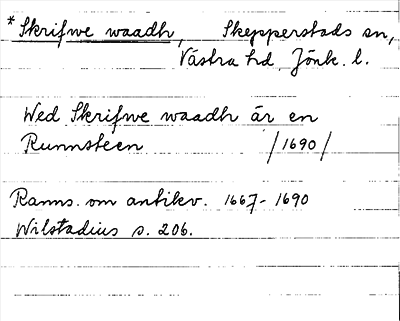 * Skrifwe waadh, Skepperstads sn,
Västra hd, Jönk. l.
Wed Skrifwe waadh är en
Runnsteen /1690/
Ranns. om antikv. 1667-1690
Wilstadius s. 206.